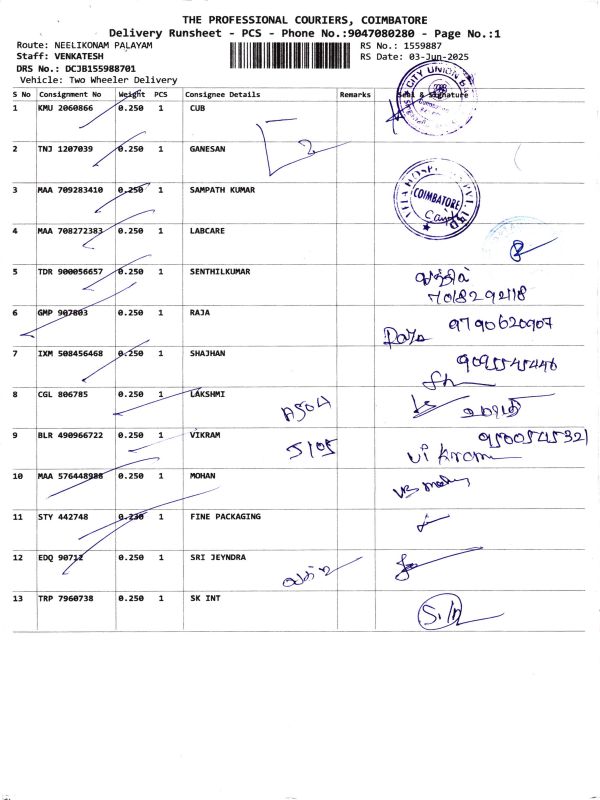 THE PROFESSIONAL COURIERS, COIMBATORE
Delivery Runsheet - PCS - Phone No.:9047080280 - Page No.:1
Route: NEELIKONAM PALAYAM
Staff: VENKATESH
DRS No.: DCJB155988701
Vehicle: Two Wheeler Delivery
RS No.: 1559887
RS Date: 03-Jun-2025
S No Consignment No Weight PCS Consignee Details Remarks Seal & Signature
CITY UNION
1 KMU 2060866 0.250 1 CUB
2 TNJ 1207039 0.250 1 GANESAN
2
3 MAA 709283410 0.250 1 SAMPATH KUMAR
COIMBATORE
4 MAA 708272383 0.250 1 LABCARE
5 TDR 900056657 0.250 1 SENTHILKUMAR
7018292118
6 GMP 907803 0.250 1 RAJA
9790620907
7 IXM 508456468 0.250 1 SHAJHAN
9095545446
8 CGL 806785 0.250 1 LAKSHMI
A504
9 BLR 490966722 0.250 1 VIKRAM
5105
9500545321
Vikram
10 MAA 576448988 0.250 1 MOHAN
11 STY 442748 0.230 1 FINE PACKAGING
12 EDQ 90712 0.250 1 SRI JEYNDRA
13 TRP 7960738 0.250 1 SK INT